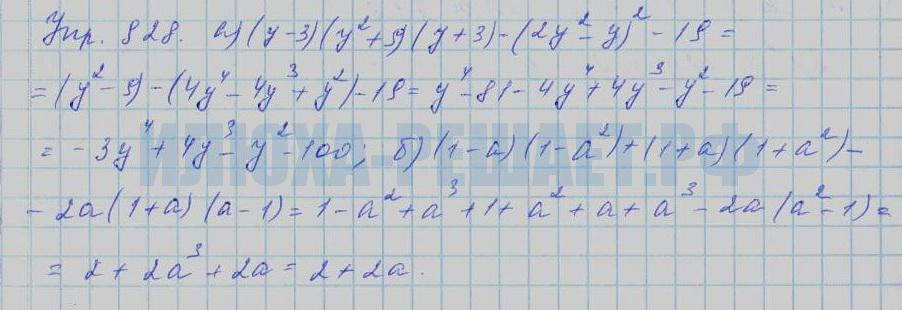 Упр. 828. а) (y-3)(y²+9)(y+3)-(2y²-y)²-19=
=(y²-9)-(4y⁴-4y³+y²)-19=y⁴-81-4y⁴+4y³-y²-19=
=-3y⁴+4y³-y²-100; б) (1-a)(1-a²)+(1+a)(1+a²)-
-2a(1+a)(a-1)=1-a²+a³+1+a²+a+a³-2a(a²-1)=
=2+2a³+2a=2+2a.
ИЛЮХА-РЕШАЕТ.РФ